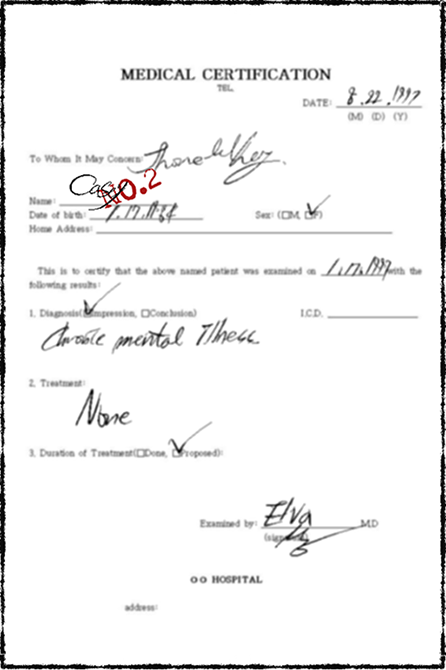 MEDICAL CERTIFICATION
TEL.
DATE: 8.22.1997
(M) (D) (Y)
To Whom It May Concern:
Name: NO.2
Date of birth:
Sex: (□M, □F)
Home Address:
This is to certify that the above named patient was examined on 1.17.1997 with the
following results:
1. Diagnosis(□Impression, □Conclusion) I.C.D.
mental Illness
2. Treatment:
None
3. Duration of Treatment(□Done, □Proposed):
Examined by: Elva M.D
(signature)
OO HOSPITAL
address: